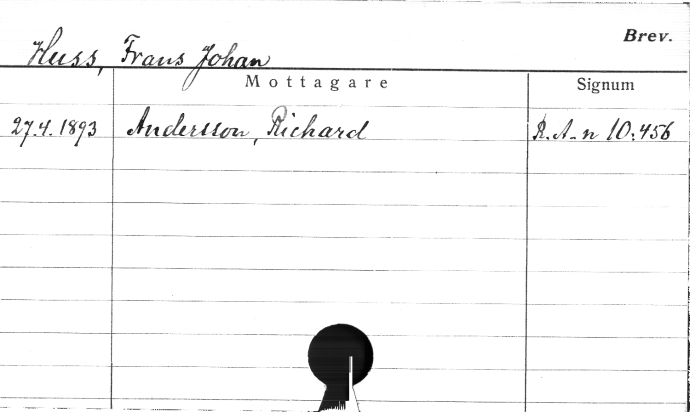 Brev.
Huss, Frans Johan
Mottagare Signum
27.4.1893 Andersson, Richard R.A-n 10:456